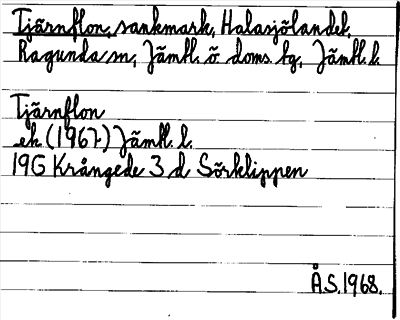 Tjärnflon, sankmark, Halasjölandet,
Ragunda sn, Jämtl. ö doms. tg, Jämtl. l.
Tjärnflon
ek (1967) Jämtl. l.
19G Krångede 3 d Sörklippen
Å.S. 1968.